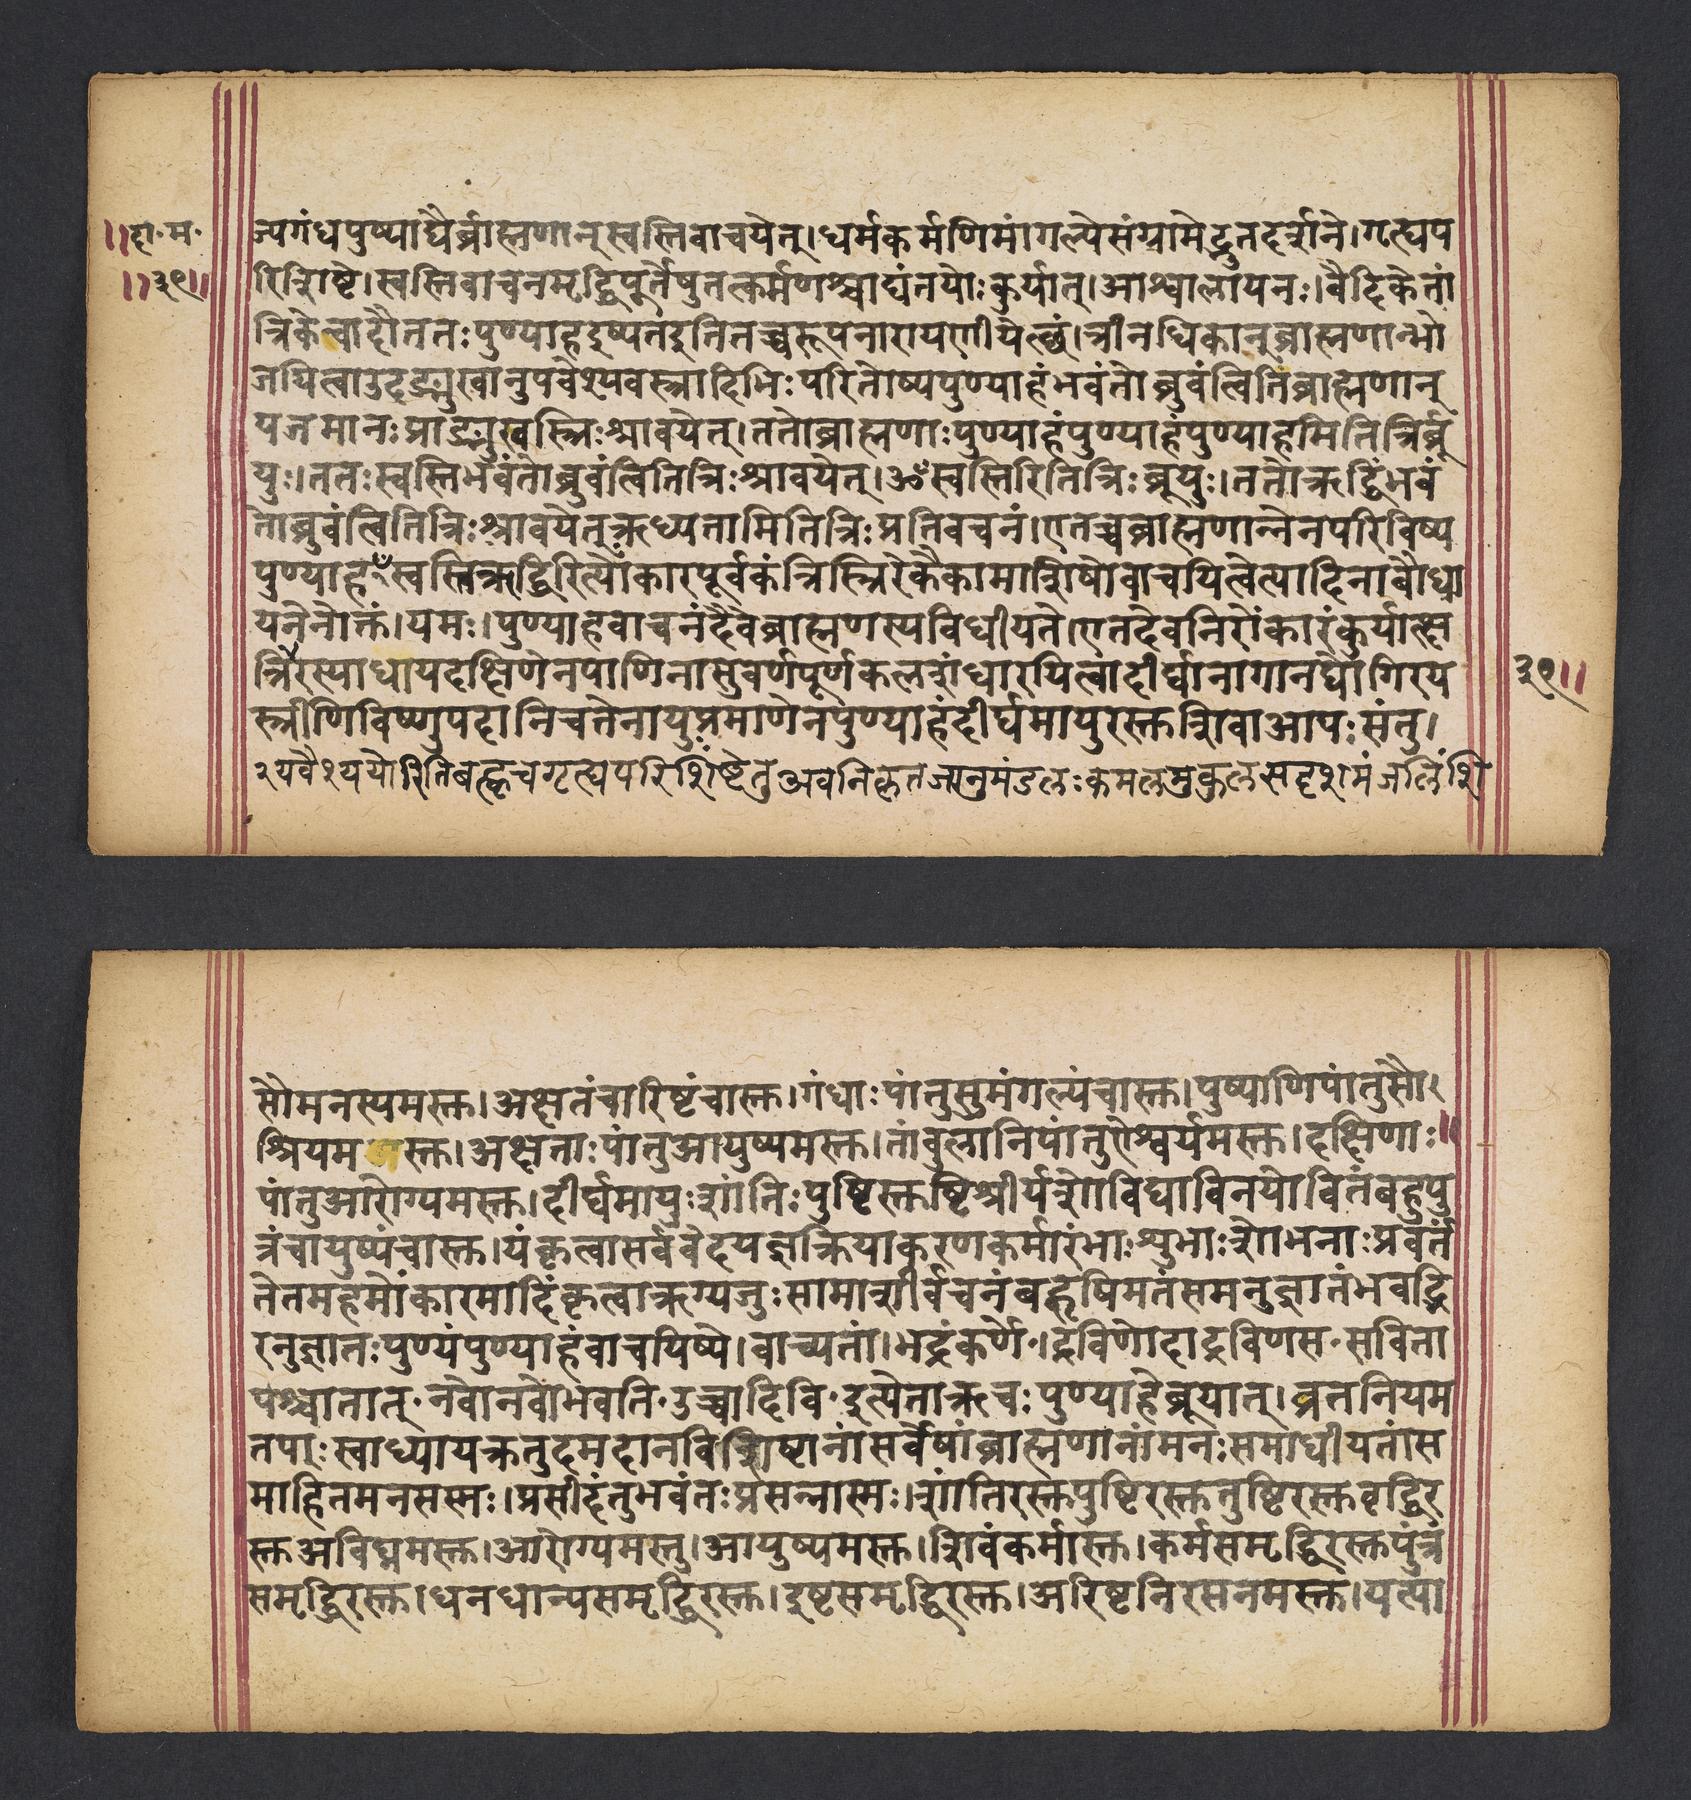 ॥दा॰म॰
॥३९॥
ज्यगंधपुष्पाद्यैर्ब्राह्मणान्स्वस्तिवाचयेत्।धर्मकर्मणिमांगल्येसंग्रामेद्भुतदर्शने।गृह्यप
रिशिष्टे।स्वस्तिवाचनमृद्धिपूर्तेषुतत्कर्मणश्चाद्यंतयोःकुर्यात्।आश्वालायनः।वैदिकेतां
त्रिकेत्वादौततःपुण्याहइष्यतेइतितच्चरूपनारायणीयेत्छं।त्रीनधिकान्ब्राह्मणान्भो
जयित्वाउदङ्मुखानुपवेश्यवस्त्रादिभिःपरितोष्यपुण्याहंभवंतोब्रुवंत्वितिब्राह्मणान्
यजमानःप्राङ्मुखस्त्रिःश्रावयेत्।ततोब्राह्मणाःपुण्याहंपुण्याहंपुण्याहमितित्रिर्ब्रू
युः।ततःस्वस्तिभवंतोब्रुवंत्वितित्रिःश्रावयेत्।ॐस्वस्तिरितित्रिःब्रूयुः।ततोऋद्धिंभवं
तोब्रुवंत्वितित्रिःश्रावयेत्ऋध्यतामितित्रिःप्रतिवचनं।एतच्चब्राह्मणान्नेनपरिविष्य
पुण्याहꣳस्वस्तिऋद्धिरित्योंकारपूर्वकंत्रिस्त्रिरेकैकामाशिषोवाचयित्वेत्यादिनाबौधा
यनेनोक्तं।यमः।पुण्याहवाचनंदैवेब्राह्मणस्यविधीयते।एतदेवनिरोंकारंकुर्यात्क्ष
त्रिरस्याधायदक्षिणेनपाणिनासुवर्णपूर्णकलशंधारयित्वादीर्घानागानद्योगिरय
३९॥
स्त्रीणिविष्णुपदानिचतेनायुःप्रमाणेनपुण्याहंदीर्घमायुरस्तुशिवाआपःसंतु।
२यवैश्ययोरितिबत्दृचगृत्द्यपरिशिष्टेतुअवनिकृतजानुमंडलःकमलमुकुलसदृशमंजलिंशि
सौमनस्यमस्तु।अक्षतंचारिष्टंचास्तु।गंधाःपांतुसुमंगल्यंचास्तु।पुष्पाणिपांतुसौ२
श्रियमस्तु।अक्षताःपांतुआयुष्यमस्तु।तांबुलानिपांतुऐश्वर्यमस्तु।दक्षिणाः॥
पांतुआरोग्यमस्तु।दीर्घमायुःशांतिःपुष्टिस्तुष्टिश्रीर्यशोविद्याविनयोवित्तंबहुपु
त्रंचायुष्यंचास्तु।यंकृत्वासर्ववेदयज्ञक्रियाकरणकर्मारंभाःशुभाःशोभनाःप्रवर्तं
तेतमहमोंकारमादिंकृत्वाऋग्यजुःसामाशीर्वचनंबहृषिमतंसमनुज्ञातंभवद्भि
रनुज्ञातःपुण्यंपुण्याहंवाचयिष्ये।वाच्यतां।भद्रंकर्णे॰।द्रविणोदाद्रविणस॰सविता
पश्चातात्॰नवोनवोभवति॰उच्चादिवि॰इत्येताऋचःपुण्याहेब्रूयात्।व्रतनियम
तपःस्वाध्यायक्रतुदमदानविशिष्टानांसर्वेषांब्राह्मणानांमनःसमाधीयतांस
माहितमनसःस्मः।प्रसीदंतुभवंतःप्रसन्नास्मः।शांतिरस्तुपुष्टिरस्तुतुष्टिरस्तुवृद्धिर
स्तुअविघ्नमस्तु।आरोग्यमस्तु।आयुष्यमस्तु।शिवंकर्मास्तु।कर्मसमृद्धिरस्तुपुत्रं
समृद्धिरस्तु।धनधान्यसमृद्धिरस्तु।इष्टसमृद्धिरस्तु।अरिष्टनिरसनमस्तु।यत्पा